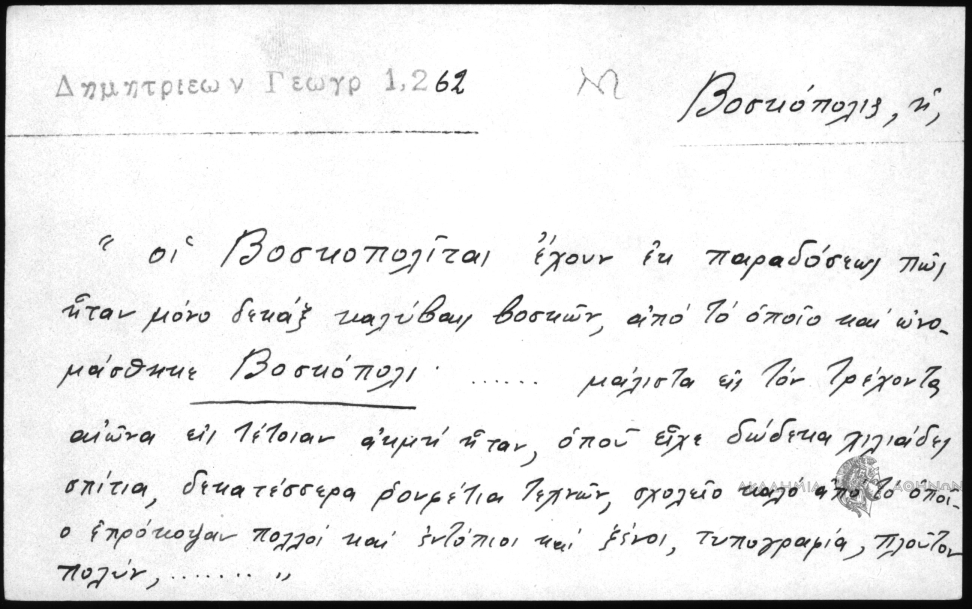 Δημητριεων Γεωγρ 1,262
Βοσκόπολις, ἡ,
“ οἱ Βοσκοπολῖται ἔχουν ἐκ παραδόσεως πῶς
ἦταν μόνο δεκάξ καλύβαις βοσκῶν, ἀπό τό ὁποῖο καί ὠνο-
μάσθηκε Βοσκόπολι · ...... μάλιστα εἰς τόν τρέχοντα
αἰῶνα εἰς τέτοιαν ἀκμή ἦταν, ὁποῦ εἶχε δώδεκα χιλιάδες
σπίτια, δεκατέσσερα ρουφέτια τεχνῶν, σχολεῖο καλό ἀπό τό ὁποῖ-
ο ἐπρόκοψαν πολλοί καί ἐντόπιοι καί ξένοι, τυπογραφία, πλοῦτον
πολύν, ....... „
ΑΚΑΔΗΜΙΑ ΑΘΗΝΩΝ